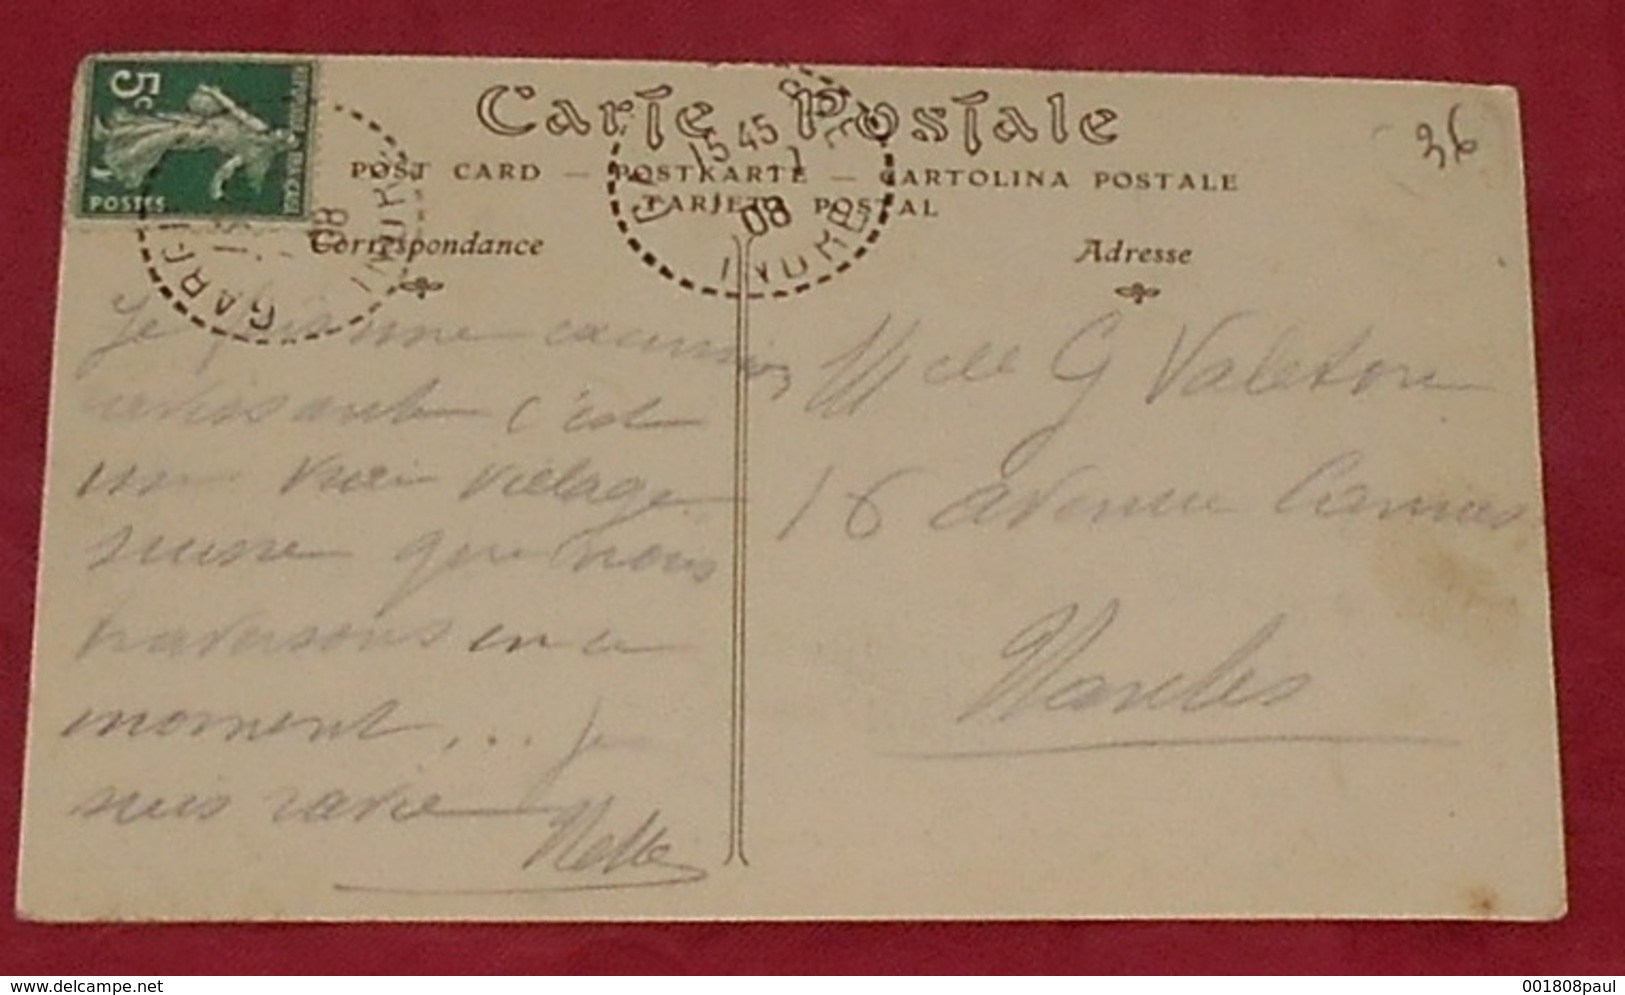 Carte Postale
POST CARD — POSTKARTE — CARTOLINA POSTALE
TARJETA POSTAL
36
5c
POSTES
15 45
08
INDRE
GARGI
08
INDRE
Correspondance
Adresse
Je fais une excursion
ravissante c'est
un vrai village
suisse que nous
traversons en ce
moment, ... je
suis ravie
Nelle
Melle G Valeton
16 avenue Camus
Nantes
delcampe.net
001808paul